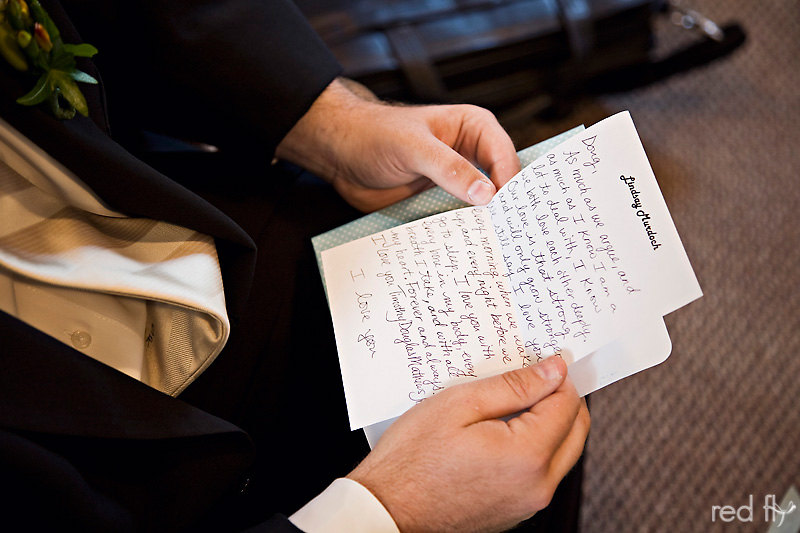 Lindsay Murdoch
Doug,
As much as we argue, and
as much as I know I am a
lot to deal with, I know
we both love each other deeply.
Our love is that strong
and will only grow stronger
still say I love you
every morning when we wake
up and every night before we
go to sleep. I love you with
every bone in my body, every
breath I take, and with all
my heart. Forever and always.
I love you Timothy Douglas
I love you
red fly